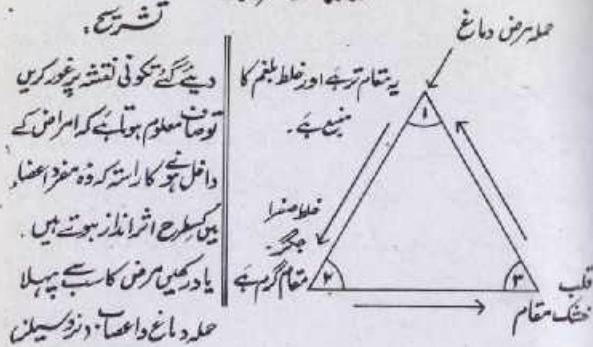 تشریح:
دیئے گئے تکونی نقشہ پر غور کریں
تو صاف معلوم ہوتا ہے کہ امراض کے
داخل ہونے کا راستہ کہ وہ مفرد اعضاء
میں کس طرح اثر انداز ہوتے ہیں۔
یاد رکھیں مرض کا سب سے پہلا
حملہ دماغ و اعصاب (نروسیلز)
حملہ مرض دماغ
یہ مقام تر ہے اور خلط بلغم کا
منبع ہے۔
۱
خلط صفرا
جگر
مقام گرم ہے
۲
۳
قلب
خشک مقام